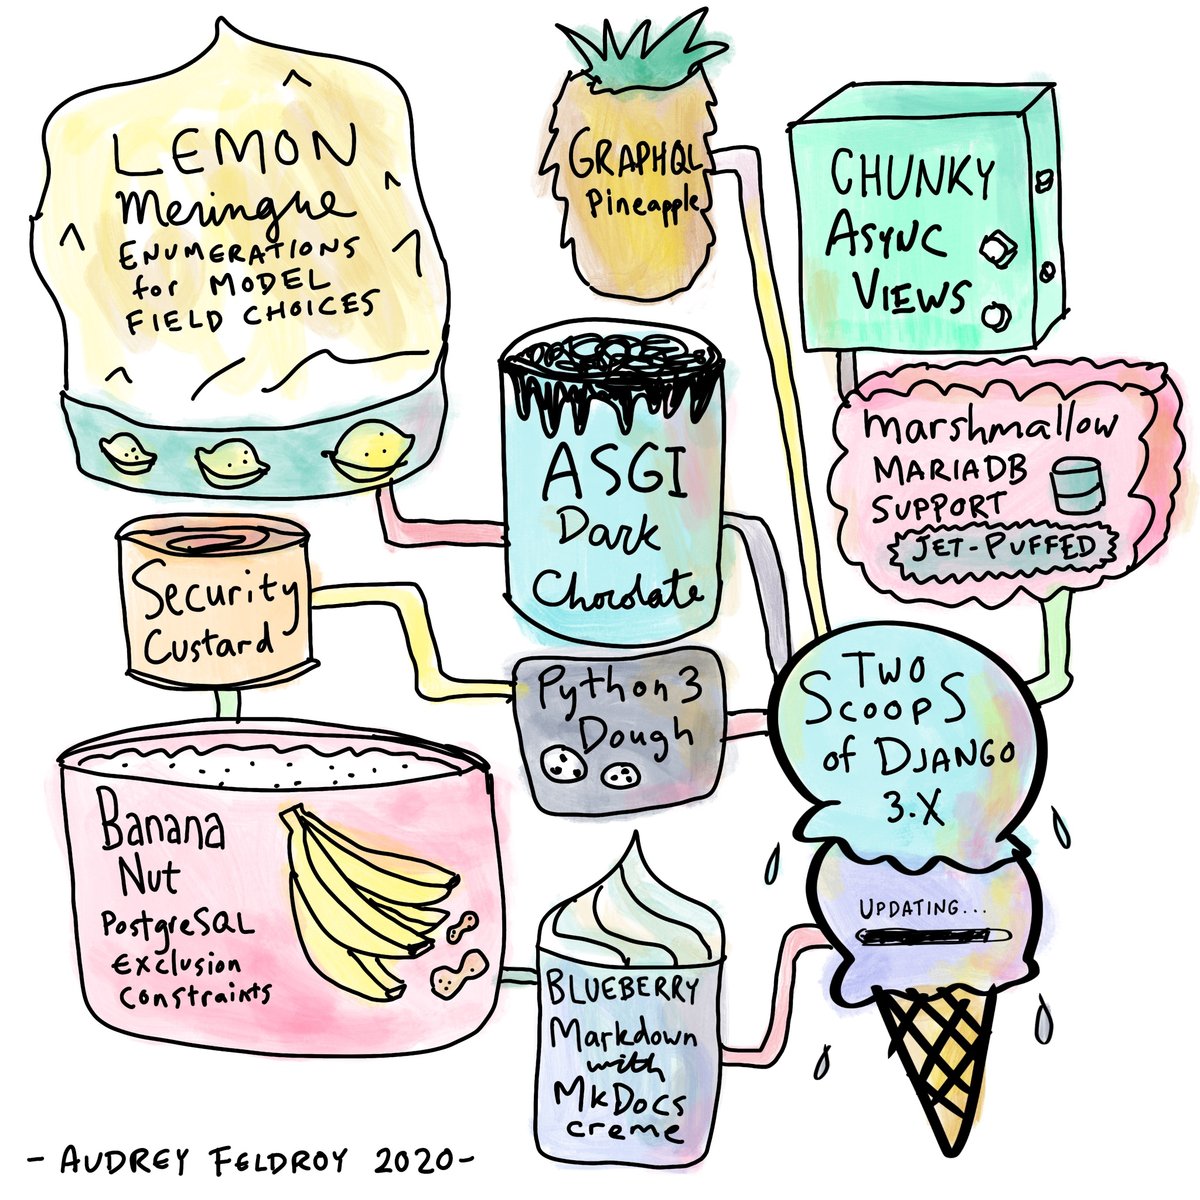 LEMON
Meringue
ENUMERATIONS
for MODEL
FIELD CHOICES
GRAPHQL
Pineapple
CHUNKY
ASYNC
VIEWS
ASGI
Dark
Chocolate
marshmallow
MARIADB
SUPPORT
JET-PUFFED
Security
Custard
Python 3
Dough
TWO
SCOOPS
of DJANGO
3.X
UPDATING...
Banana
Nut
PostgreSQL
Exclusion
Constraints
BLUEBERRY
Markdown
with
MkDocs
creme
- AUDREY FELDROY 2020 -